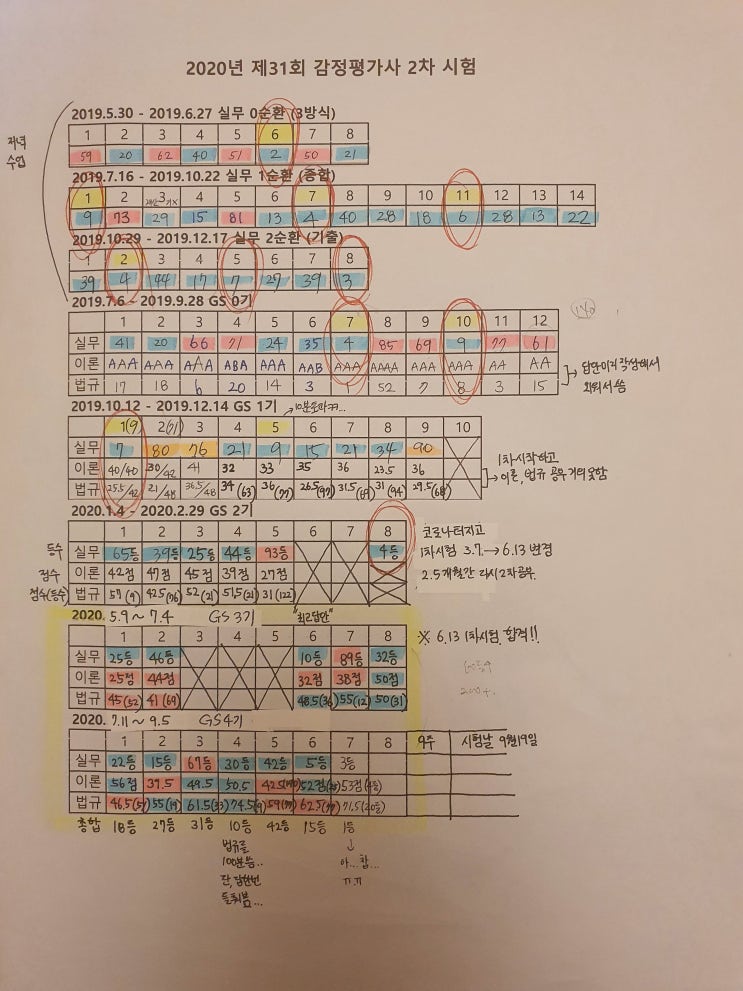 2020년 제31회 감정평가사 2차 시험
저녁
수업
2019.5.30 - 2019.6.27 실무 0순환 (3방식)
1 2 3 4 5 6 7 8
59 20 62 40 51 2 50 21
2019.7.16 - 2019.10.22 실무 1순환 (종합)
1 2 3 4 5 6 7 8 9 10 11 12 13 14
9 73 29 15 81 13 4 40 28 18 6 28 13 22
2019.10.29 - 2019.12.17 실무 2순환 (기출)
1 2 3 4 5 6 7 8
39 4 44 17 7 27 39 3
2019.7.6 - 2019.9.28 GS 0기
1 2 3 4 5 6 7 8 9 10 11 12
실무 41 20 66 71 24 35 4 85 69 9 77 61
이론 AAA AAA AAA ABA AAA AAB AAA AAAA AAA AAA AA AA
법규 17 18 6 20 14 3 1 52 7 8 3 15
외워서 씀
2019.10.12 - 2019.12.14 GS 1기
1(9) 2 3 4 5 6 7 8 9 10
실무 7 80 76 21 9 15 21 34 90
이론 40/40 30/42 41 32 33 35 36 23.5 36
법규 25.5/42 21/48 36.5/48 34(63) 36(77) 26.5(97) 31.5(69) 31(94) 29.5(68)
1차시작하고
이론, 법규 공부 거의 못함
2020.1.4 - 2020.2.29 GS 2기
1 2 3 4 5 6 7 8
등수 실무 65등 39등 25등 44등 93등 4등
점수 이론 42점 47점 45점 39점 27점
점수(등수) 법규 57(9) 42.5(76) 52(21) 51.5(21) 31(122)
코로나 터지고
1차시험 3.7 → 6.13 변경
2.5개월간 다시 2차공부.
2020. 5.9 ~ 7.4 GS 3기 "최고답안"
1 2 3 4 5 6 7 8
실무 25등 46등 10등 89등 32등
이론 25점 44점 32점 38점 50점
법규 45(52) 41(69) 48.5(36) 55(12) 50(31)
※ 6.13 1차시험 합격!!
2020. 7.11 ~ 9.5 GS4기
1 2 3 4 5 6 7 8 9주 시험날 9월19일
실무 22등 15등 67등 30등 42등 5등 3등
이론 56점 39.5 49.5 50.5 42.5 52점 53점
법규 46.5 55(19) 61.5(33) 74.5(9) 59 62.5 71.5(20등)
총합 18등 27등 31등 10등 42등 15등 1등
법규를 ↓
100분씀.. 아...참...
단, 답안한번 ㅠ.ㅠ
들춰봄...